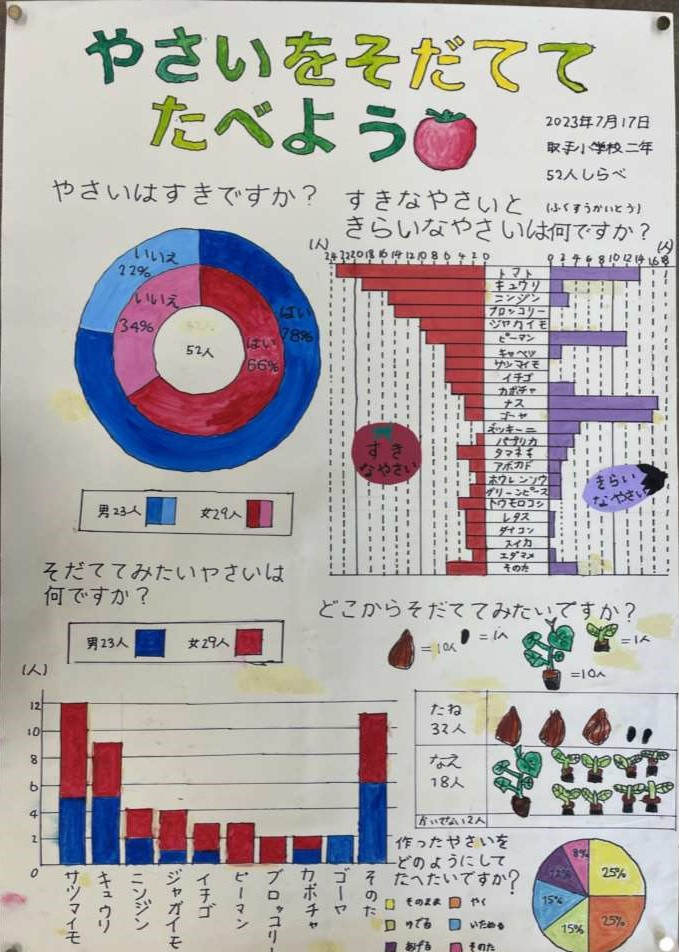 やさいをそだてて
たべよう
2023年7月17日
取手小学校二年
52人しらべ
やさいはすきですか?
いいえ
22%
いいえ
34%
はい
78%
はい
66%
52人
男23人 女29人
すきなやさいと (ふくすうかいとう)
きらいなやさいは何ですか?
(人) (人)
24 22 20 18 16 14 12 10 8 6 4 2 0 0 2 4 6 8 10 12 14 16 18
トマト
キュウリ
ニンジン
ブロッコリー
ジャガイモ
ピーマン
キャベツ
サツマイモ
イチゴ
カボチャ
ナス
ゴーヤ
ズッキーニ
パプリカ
タマネギ
アボカド
ホウレンソウ
グリーンピース
トウモロコシ
レタス
ダイコン
スイカ
エダマメ
そのた
すき
なやさい
きらい
なやさい
そだててみたいやさいは
何ですか?
男23人 女29人
(人)
12
10
8
6
4
2
0
サツマイモ
キュウリ
ニンジン
ジャガイモ
イチゴ
ピーマン
ブロッコリー
カボチャ
ゴーヤ
そのた
どこからそだててみたいですか?
=10人 =1人 =1人
=10人
たね
32人
なえ
18人
かいてない2人
作ったやさいを
どのようにして
たべたいですか?
そのまま やく
ゆでる いためる
あげる そのた
8%
25%
12%
15%
15%
25%